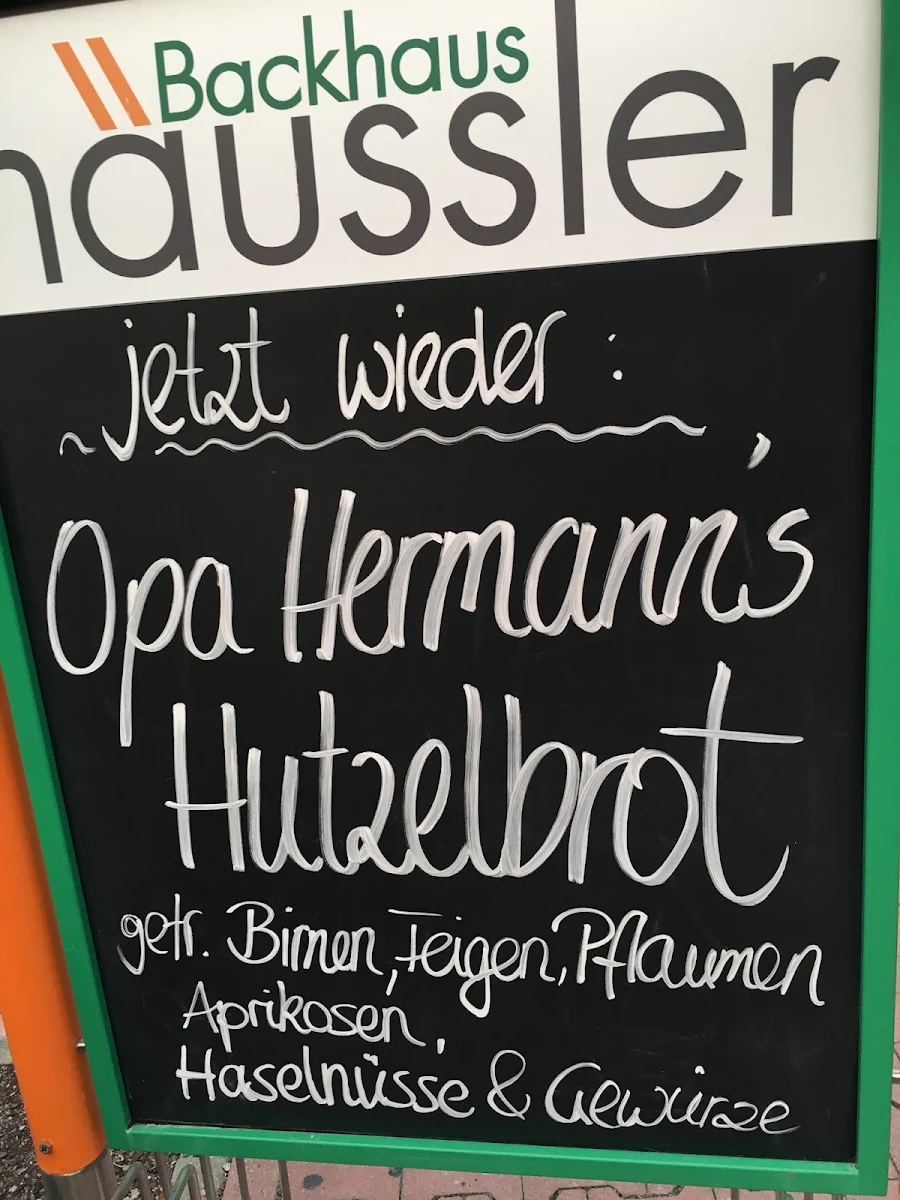 Backhaus
häussler
jetzt wieder:
Opa Hermann's
Hutzelbrot
getr. Birnen, Feigen, Pflaumen
Aprikosen,
Haselnüsse & Gewürze